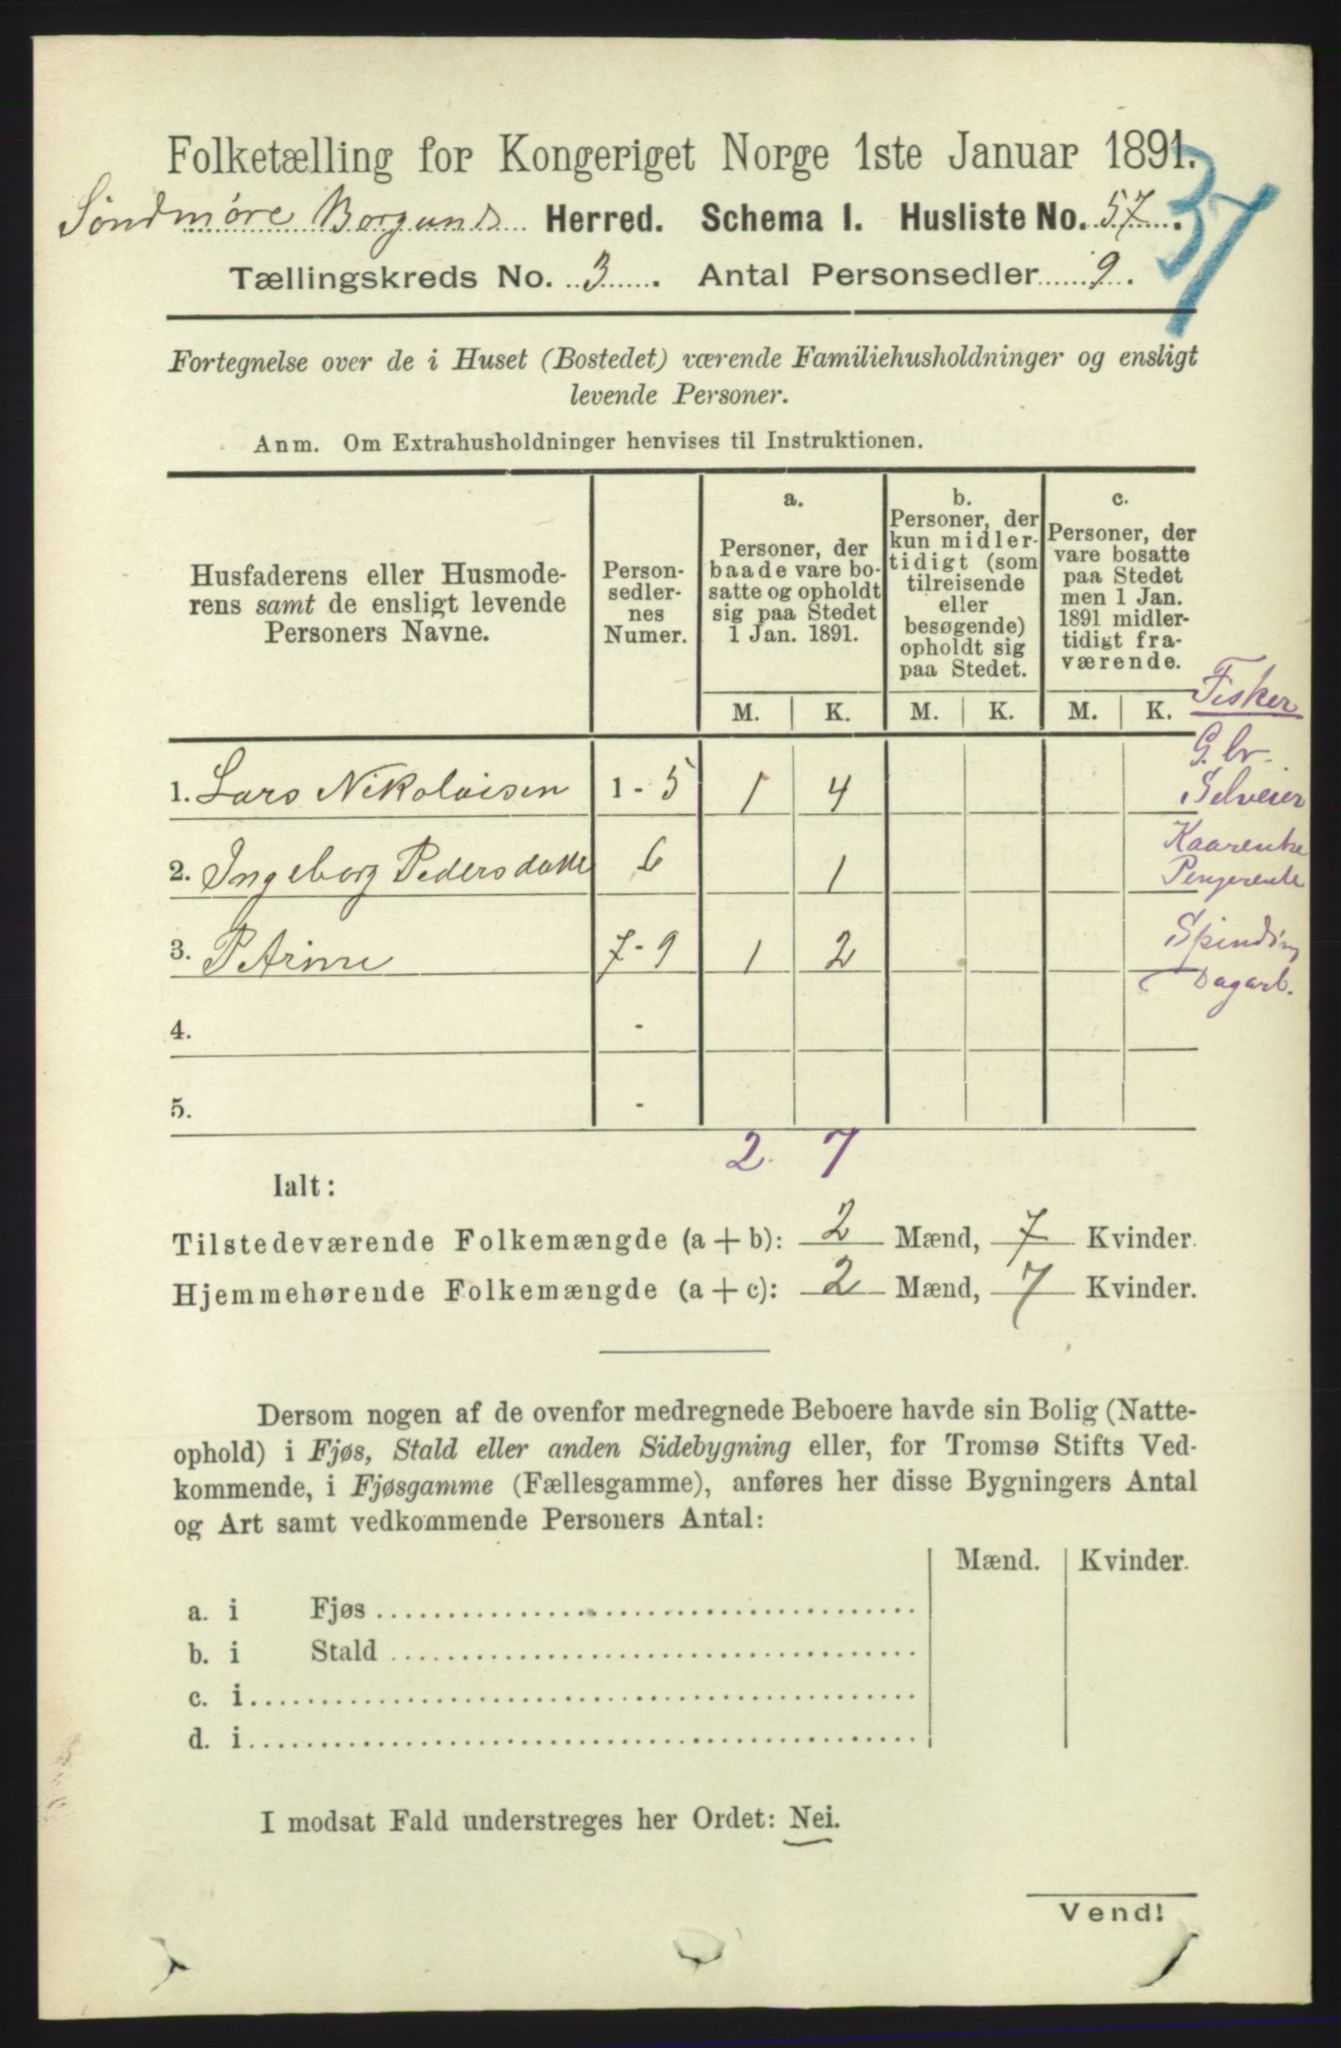 Folketælling for Kongeriget Norge 1ste Januar 1891.
37
Søndmøre Borgunds Herred. Schema I. Husliste No. 57.
Tællingskreds No. 3. Antal Personsedler 9.
Fortegnelse over de i Huset (Bostedet) værende Familiehusholdninger og ensligt
levende Personer.
Anm. Om Extrahusholdninger henvises til Instruktionen.
Husfaderens eller Husmode-
rens samt de ensligt levende
Personers Navne.
Person-
sedler-
nes
Numer.
a.
Personer, der
baade vare bo-
satte og opholdt
sig paa Stedet
1 Jan. 1891.
b.
Personer, der
kun midler-
tidigt (som
tilreisende
eller
besøgende)
opholdt sig
paa Stedet.
c.
Personer, der
vare bosatte
paa Stedet
men 1 Jan.
1891 midler-
tidigt fra-
værende.
M. K. M. K. M. K.
Fisker
G.br.
1. Lars Nikolaisen 1 - 5 1 4 Selveier
2. Ingeborg Pedersdatte 6 1 Kaarenke
Pengerente
3. P Arme 7 - 9 1 2 Spinding
Dagarb.
4. -
5. -
2 7
Ialt:
Tilstedeværende Folkemængde (a + b): 2 Mænd, 7 Kvinder.
Hjemmehørende Folkemængde (a + c): 2 Mænd, 7 Kvinder.
Dersom nogen af de ovenfor medregnede Beboere havde sin Bolig (Natte-
ophold) i Fjøs, Stald eller anden Sidebygning eller, for Tromsø Stifts Ved-
kommende, i Fjøsgamme (Fællesgamme), anføres her disse Bygningers Antal
og Art samt vedkommende Personers Antal:
Mænd. Kvinder.
a. i Fjøs
b. i Stald
c. i
d. i
I modsat Fald understreges her Ordet: Nei.
Vend!